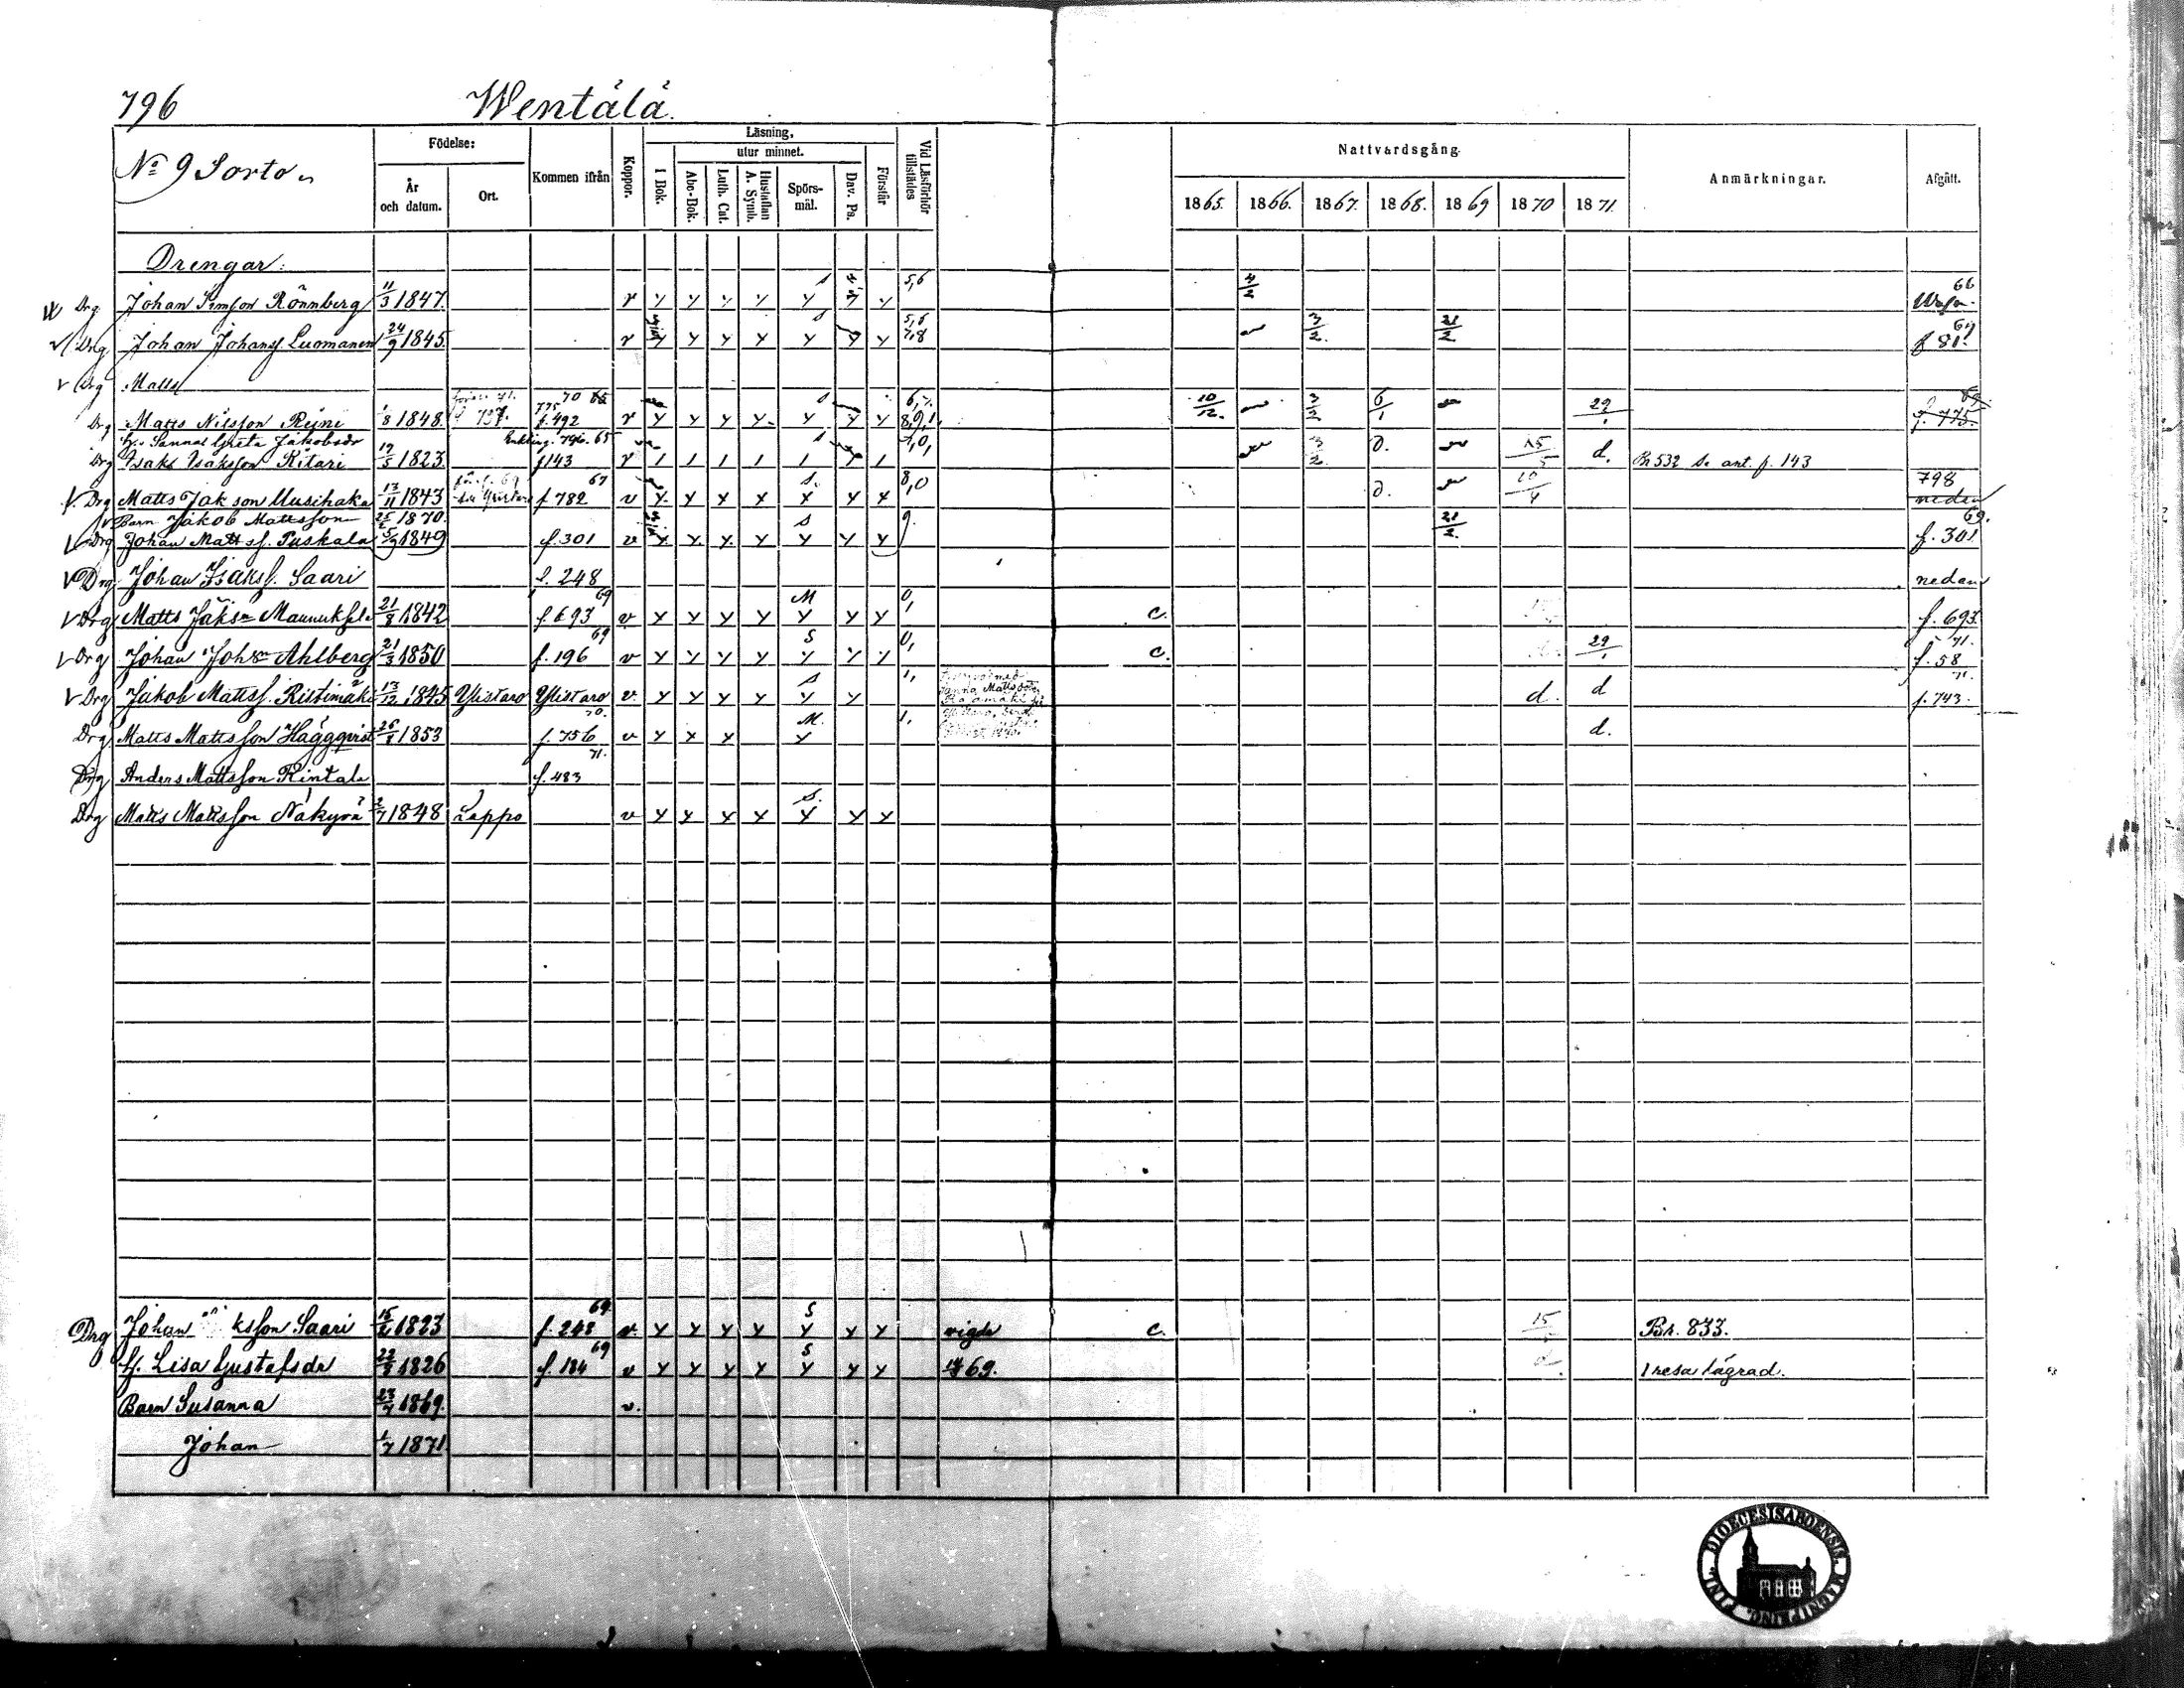 796 Wentälä.
No 9 Sorto
Födelse:
År och datum.
Ort.
Kommen ifrån
Koppor.
Läsning,
utur minnet.
I Bok.
Abc-Bok.
Luth. Cat.
Hustaflan A. Symb.
Spörsmål.
Dav. Ps.
Förstår
Vid Läsförhör tillstädes
Nattvardsgång.
1865. 1866. 1867. 1868. 1869 1870 1871.
Anmärkningar.
Afgått.
Drengar:
Drg Johan Simson Rönnberg 11/3 1847. v y y y y y y y 5,6 4/2 66 Wasa
Drg Johan Johansf. Luomanen 24/9 1845 v y y y y y y y 5,6 7,8 3/2. 21/2 69 f 81.
Drg Matts
Drg Matts Nilsson Reini 1/8 1848. f. 492 v y y y y y y y 6,7. 8,9,1. 10/12. 3/2 6/1 29/1 f. 775.
h. Sanna Greta Jakobsdr
Drg Isaks Isaksson Ritari 17/5 1823. f 143 v 3/2 d. 15/5 d. Br 532 se ant. f. 143
Drg Matts Jakson Uusihaka 13/11 1843 67 f. 782 v y y y y y y y 8,0 d. 10/4 798 nedan
Barn Jakob Mattsson 25/2 1870.
Drg Johan Mattsf. Puskala 5/9 1849 f. 301 v y y y y y y y 9 21/2. 69. f. 301
Drg Johan Isaksf. Saari f. 248 nedan
Drg Matts Jaksn Maunuksela 21/8 1842 69 f. 693 v y y y y M y y y c. f. 693
Drg Johan Johsn Ahlberg 21/3 1850 69 f. 196 v y y y y S y y y 0, c. 29/1 71. f. 58
Drg Jakob Mattsf. Ristimäki 13/12 1845 Ylistaro Ylistaro v. y y y y s y y 1, d. d 71. f. 743.
Drg Matts Mattsson Häggqvist 26/8 1853 70. f. 756 v y y y M. y 1. d.
Drg Anders Mattsson Rintala 71. f. 483
Drg Matts Mattsson Näkyvä 2/7 1848 Lappo v y y y y S. y y y
Drg Johan ksson Saari 15/2 1823 69 f. 248 v. y y y y S y y y vigde c. 15 Br. 833.
h. Lisa Gustafsdr 22/3 1826 69 f. 184 v y y y y S y y y 69. 1 resa lägrad.
Barn Susanna 23/7 1869. v.
Johan 1/7 1871.
FINL. DIOECESIS ABOENSIS. MAGNI PRINC.